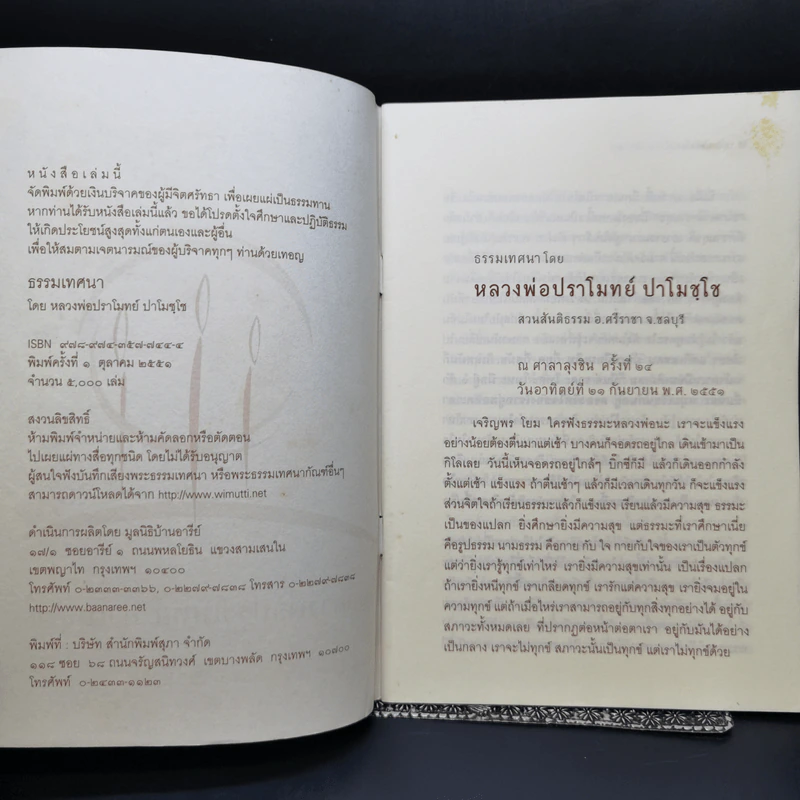 หนังสือเล่มนี้
จัดพิมพ์ด้วยเงินบริจาคของผู้มีจิตศรัทธา เพื่อเผยแผ่เป็นธรรมทาน
หากท่านได้รับหนังสือเล่มนี้แล้ว ขอได้โปรดตั้งใจศึกษาและปฏิบัติธรรม
ให้เกิดประโยชน์สูงสุดทั้งแก่ตนเองและผู้อื่น
เพื่อให้สมตามเจตนารมณ์ของผู้บริจาคทุกๆ ท่านด้วยเทอญ
ธรรมเทศนา
โดย หลวงพ่อปราโมทย์ ปาโมชฺโช
ISBN ๙๗๘-๙๗๔-๓๕๗-๗๔๔-๔
พิมพ์ครั้งที่ ๑ ตุลาคม ๒๕๕๑
จำนวน ๕,๐๐๐ เล่ม
สงวนลิขสิทธิ์
ห้ามพิมพ์จำหน่ายและห้ามคัดลอกหรือตัดตอน
ไปเผยแผ่ทางสื่อทุกชนิด โดยไม่ได้รับอนุญาต
ผู้สนใจฟังบันทึกเสียงพระธรรมเทศนา หรือพระธรรมเทศนากัณฑ์อื่นๆ
สามารถดาวน์โหลดได้จาก http://www.wimutti.net
ดำเนินการผลิตโดย มูลนิธิบ้านอารีย์
๑๗/๑ ซอยอารีย์ ๑ ถนนพหลโยธิน แขวงสามเสนใน
เขตพญาไท กรุงเทพฯ ๑๐๔๐๐
โทรศัพท์ ๐-๒๓๓๓-๓๓๖๖, ๐-๒๒๗๙๗๘๓๘ โทรสาร ๐-๒๒๗๙๗๘๓๘
http://www.baanaree.net
พิมพ์ที่ : บริษัท สำนักพิมพ์สุภา จำกัด
๑๑๘ ซอย ๖๘ ถนนจรัญสนิทวงศ์ เขตบางพลัด กรุงเทพฯ ๑๐๗๐๐
โทรศัพท์ ๐-๒๔๓๓-๑๑๒๓
ธรรมเทศนา โดย
หลวงพ่อปราโมทย์ ปาโมชฺโช
สวนสันติธรรม อ.ศรีราชา จ.ชลบุรี
ณ ศาลาลุงชิน ครั้งที่ ๒๔
วันอาทิตย์ที่ ๒๑ กันยายน พ.ศ. ๒๕๕๑
เจริญพร โยม ใครฟังธรรมะหลวงพ่อนะ เราจะแข็งแรง
อย่างน้อยต้องตื่นมาแต่เช้า บางคนก็จอดรถอยู่ไกล เดินเข้ามาเป็น
กิโลเลย วันนี้เห็นจอดรถอยู่ใกล้ๆ บิ๊กซีก็มี แล้วก็เดินออกกำลัง
ตั้งแต่เช้า แข็งแรง ถ้าตื่นเช้าๆ แล้วก็มีเวลาเดินทุกวัน ก็จะแข็งแรง
ส่วนจิตใจถ้าเรียนธรรมะแล้วก็แข็งแรง เรียนแล้วมีความสุข ธรรมะ
เป็นของแปลก ยิ่งศึกษายิ่งมีความสุข แต่ธรรมะที่เราศึกษาเนี่ย
คือรูปธรรม นามธรรม คือกาย กับ ใจ กายกับใจของเราเป็นตัวทุกข์
แต่ว่ายิ่งเรารู้ทุกข์เท่าไหร่ เรายิ่งมีความสุขเท่านั้น เป็นเรื่องแปลก
ถ้าเรายิ่งหนีทุกข์ เราเกลียดทุกข์ เรารักแต่ความสุข เรายิ่งจมอยู่ใน
ความทุกข์ แต่ถ้าเมื่อไหร่เราสามารถอยู่กับทุกสิ่งทุกอย่างได้ อยู่กับ
สภาวะทั้งหมดเลย ที่ปรากฏต่อหน้าต่อตาเรา อยู่กับมันได้อย่าง
เป็นกลาง เราจะไม่ทุกข์ สภาวะนั้นเป็นทุกข์ แต่เราไม่ทุกข์ด้วย